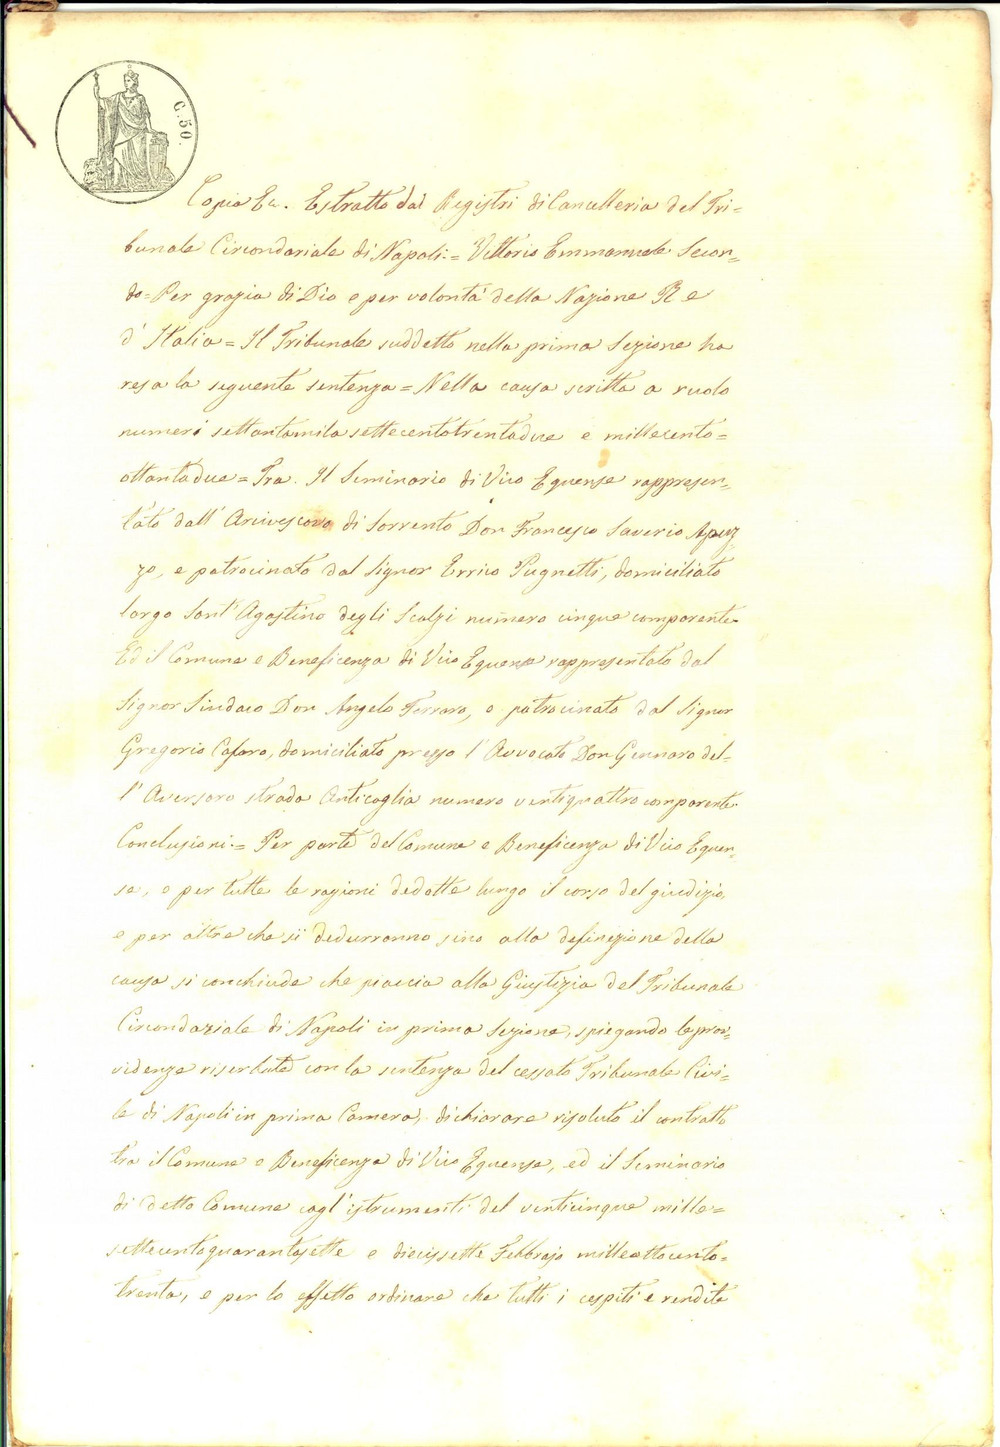 C. 50.
Copia Ec. Estratto dai Registri di Cancelleria del Tri=
bunale Circondariale di Napoli:= Vittorio Emmanuele Secon=
do= Per grazia di Dio e per volontà della Nazione Re
d'Italia= Il Tribunale suddetto nella prima Sezione ha
resa la seguente sentenza= Nella causa scritta a ruolo
numeri settantamila settecentotrentadue e millecento=
ottantadue= Tra. Il Seminario di Vico Equense rappresen=
tato dall'Arcivescovo di Sorrento Don Francesco Saverio Apuz=
zo, e patrocinato dal Signor Errico Pugnetti, domiciliato
largo Sant'Agostino degli Scalzi numero cinque comparente
Ed il Comune e Beneficenza di Vico Equense rappresentato dal
Signor Sindaco Don Angelo Ferraro, e patrocinato dal Signor
Gregorio Cafaro, domiciliato presso l'Avvocato Don Gennaro del=
l'Aversaro strada Anticaglia numero ventiquattro comparente
Conclusioni:= Per parte del Comune e Beneficenza di Vico Equen=
se, e per tutte le ragioni dedotte lungo il corso del giudizio,
e per altre che si dedurranno sino alla definizione della
causa si conchiude che piaccia alla Giustizia del Tribunale
Circondariale di Napoli in prima Sezione, spiegando le prov=
videnze riserbate con la sentenza del cessato Tribunale Civi=
le di Napoli in prima Camera, dichiarare risoluto il contratto
tra il Comune e Beneficenza di Vico Equense, ed il Seminario
di detto Comune cogl'istrumenti del venticinque mille=
settecentoquarantasette e diecissette Febbrajo milleottocento=
trenta, e per lo effetto ordinare che tutti i cespiti e rendite